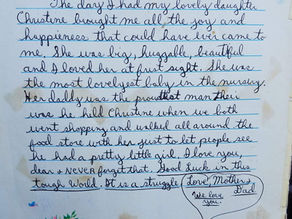 The day I had my lovely daughter
Christine brought me all the joy and
happieness that could have ever came to
me. She was big, huggable, beautiful
and I loved her at first sight. She was
the most lovelyest baby in the nursery.
Her daddy was the proudthat man their
was he hild Christine when we both
went shopping and walked all around the
food store with her just to let people see
he had a pretty little girl. I love you,
dear & NEVER forget that. Good Luck in this
tough World. It is a struggle Love, Mother
Dad
We love
you.